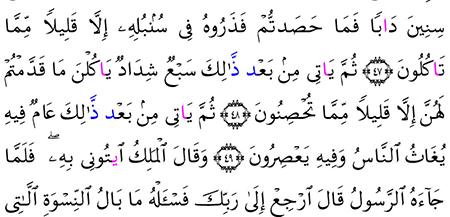 سِنِينَ دَابٗا فَمَا حَصَدتُّمْ فَذَرُوهُ فِى سُنۢبُلِهِۦٓ إِلَّا قَلِيلٗا مِّمَّا
تَاكُلُونَ ٤٧ ثُمَّ يَاتِى مِنۢ بَعْد ذَّٰلِكَ سَبْعٞ شِدَادٞ يَاكُلْنَ مَا قَدَّمْتُمْ
لَهُنَّ إِلَّا قَلِيلٗا مِّمَّا تُحْصِنُونَ ٤٨ ثُمَّ يَاتِى مِنۢ بَعْد ذَّٰلِكَ عَامٞ فِيهِ
يُغَاثُ ٱلنَّاسُ وَفِيهِ يَعْصِرُونَ ٤٩ وَقَالَ ٱلْمَلِكُ ٱيتُونِى بِهِۦۖ فَلَمَّا
جَآءَهُ ٱلرَّسُولُ قَالَ ٱرْجِعْ إِلَىٰ رَبِّكَ فَسْـَٔلْهُ مَا بَالُ ٱلنِّسْوَةِ ٱلَّٰتِى